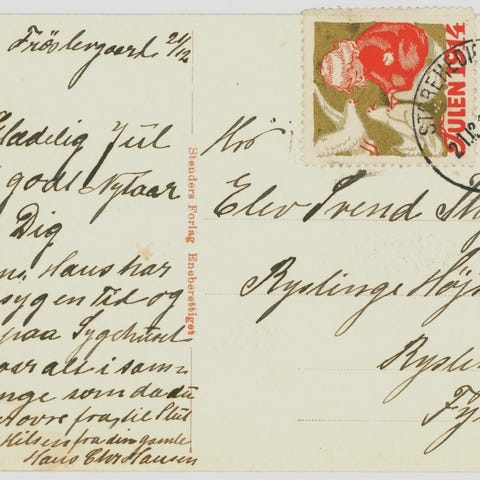 Frøslevgaard 21/12
Glædelig Jul
godt Nytaar
Dig
Hans har
syg en Tid og
paa Sygehuset
alt i sam=
som da du
ovre fra, til Slut
Hilsen fra din gamle
Hans Chr Hansen
Stenders Forlag Eneberettiget
JULEN 1914
STOREHEDI
21.12
Hrr
Elev Svend
Ryslinge Højs
Rysl
Fy